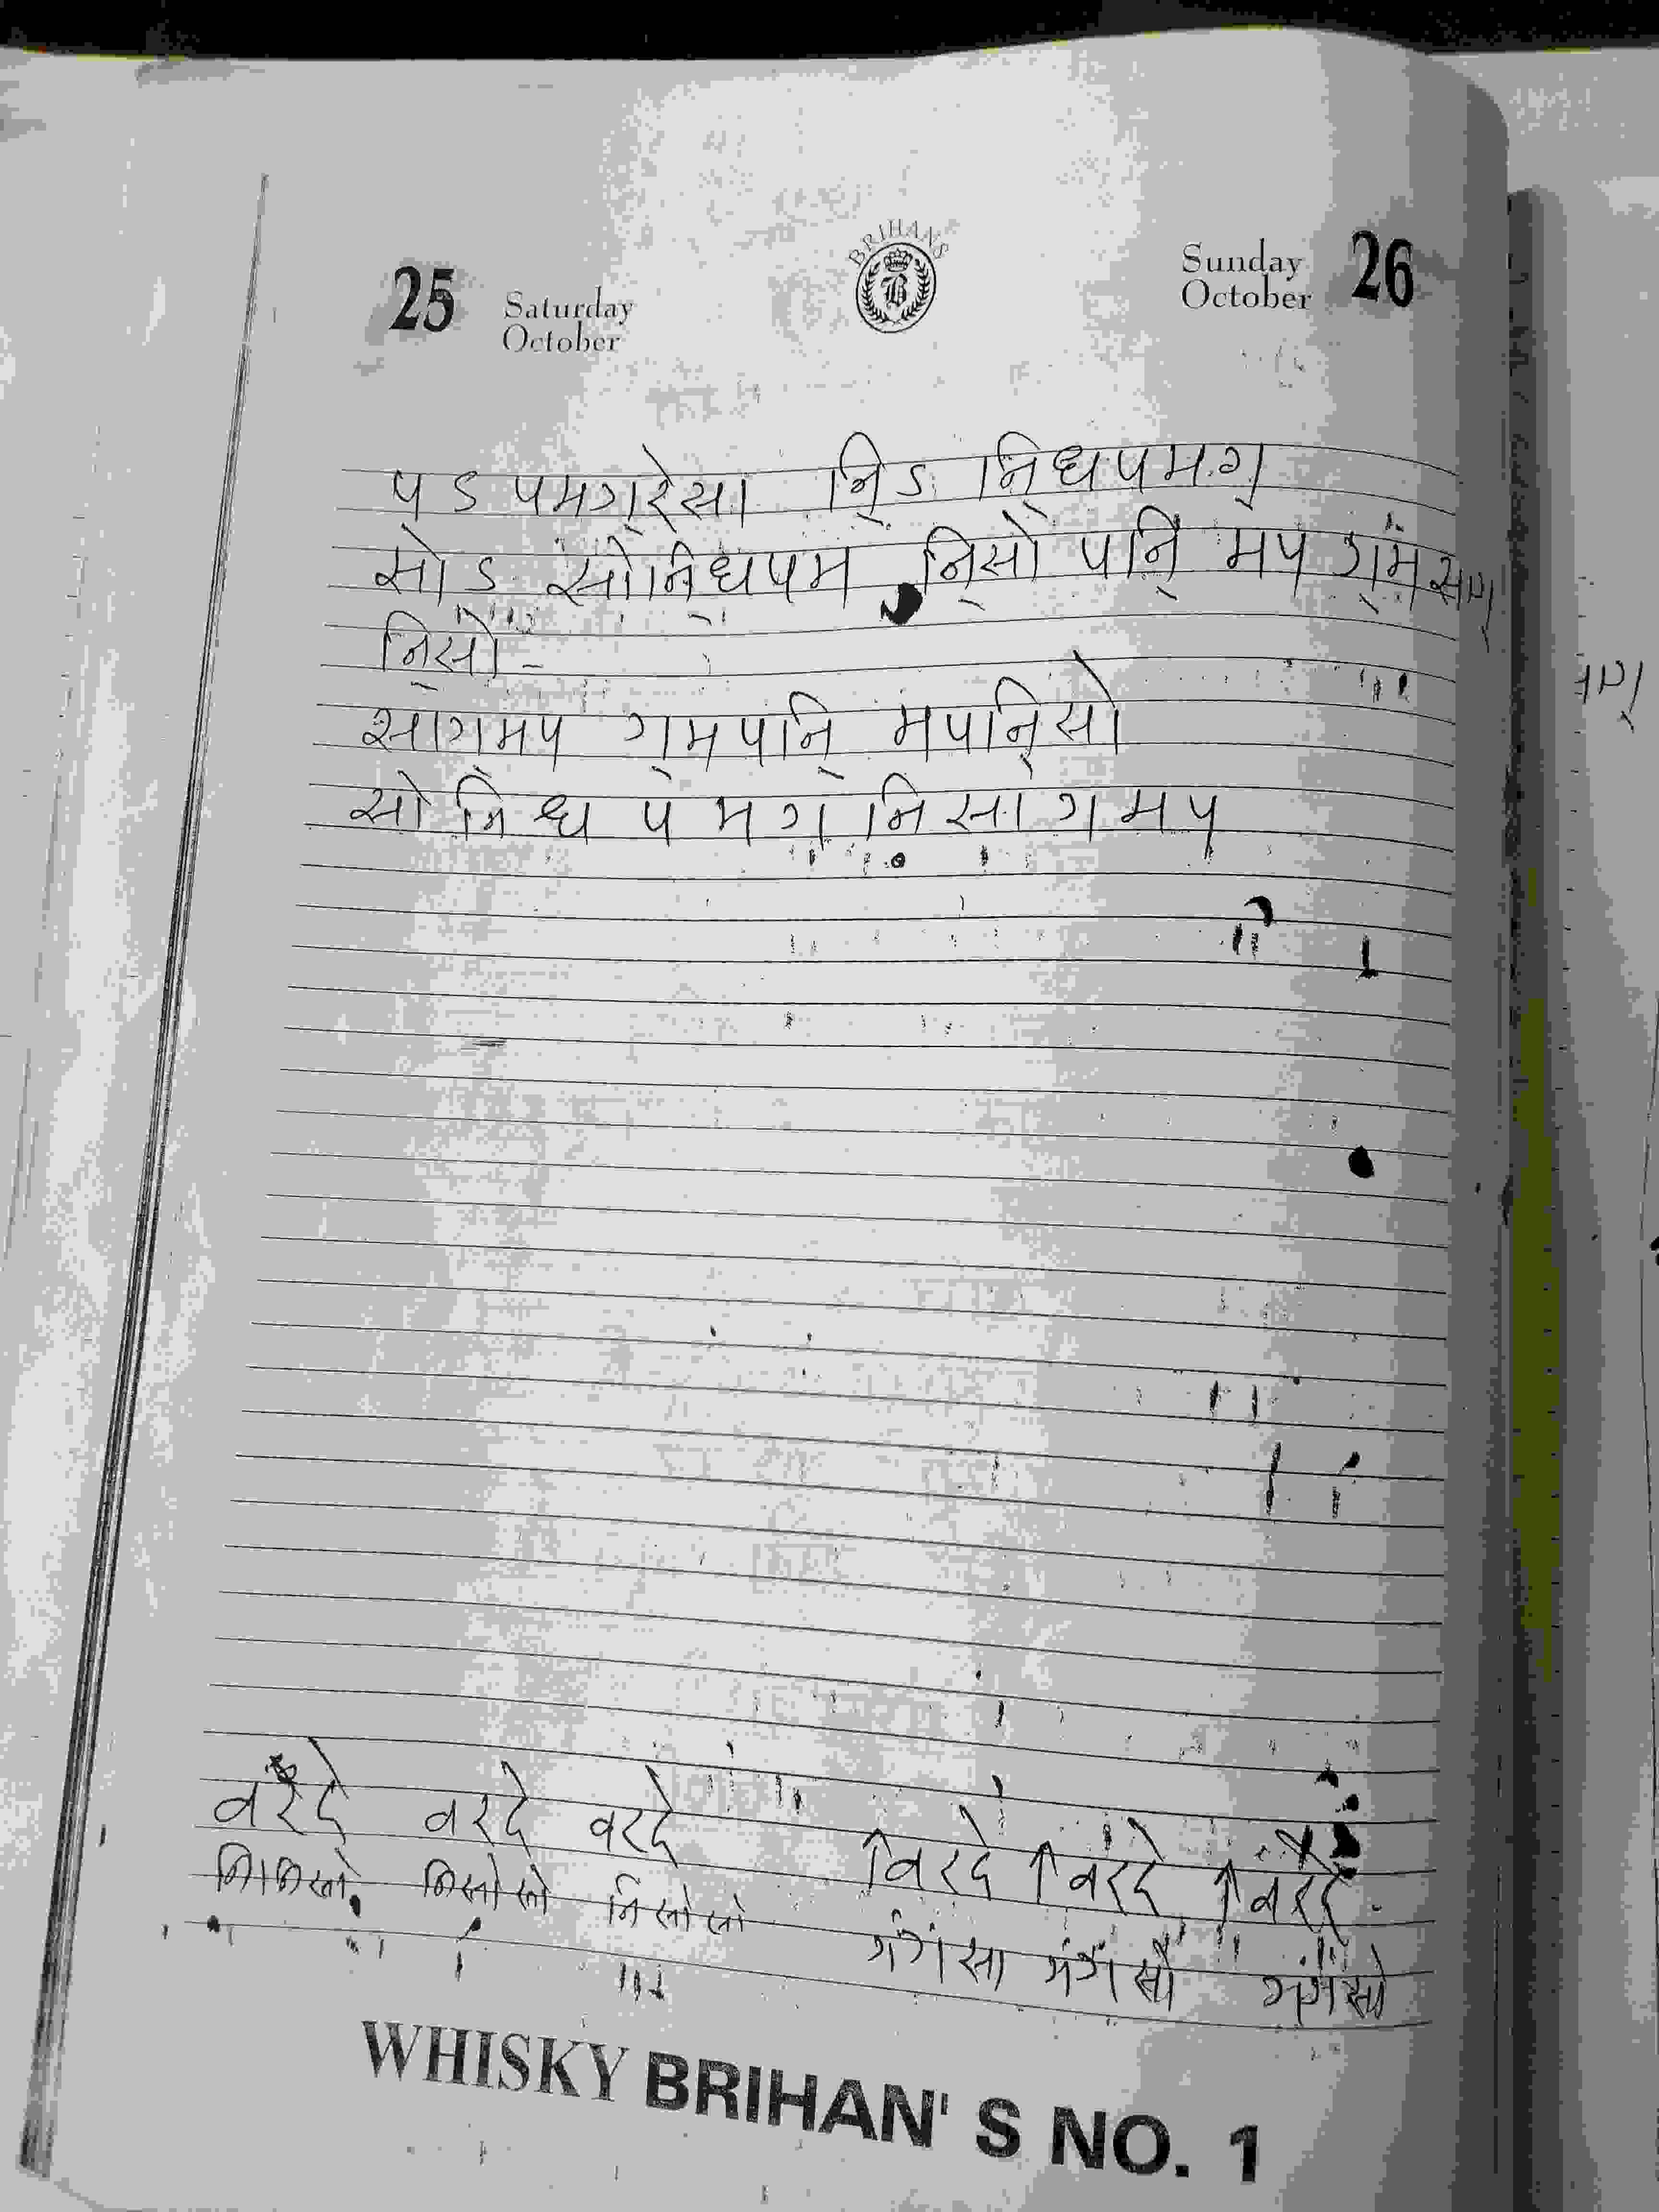 25 Saturday October BRIHANS B Sunday October 26
प ऽ पमग॒रेसा नि॒ऽ नि॒धपमग॒
सांऽ सांनि॒धपम नि॒सां पनि॒ मप ग॒म साग॒
नि॒सां -
साग॒मप ग॒मपनि॒ मपनि॒सां
सां नि ध प म ग॒ नि सा ग म प
वरदे वरदे वरदे विरदे विरदे विरदे
निनिसां निसांसां निसांसां
गंगंसां गंगंसां गंगंसां
WHISKY BRIHAN'S NO. 1